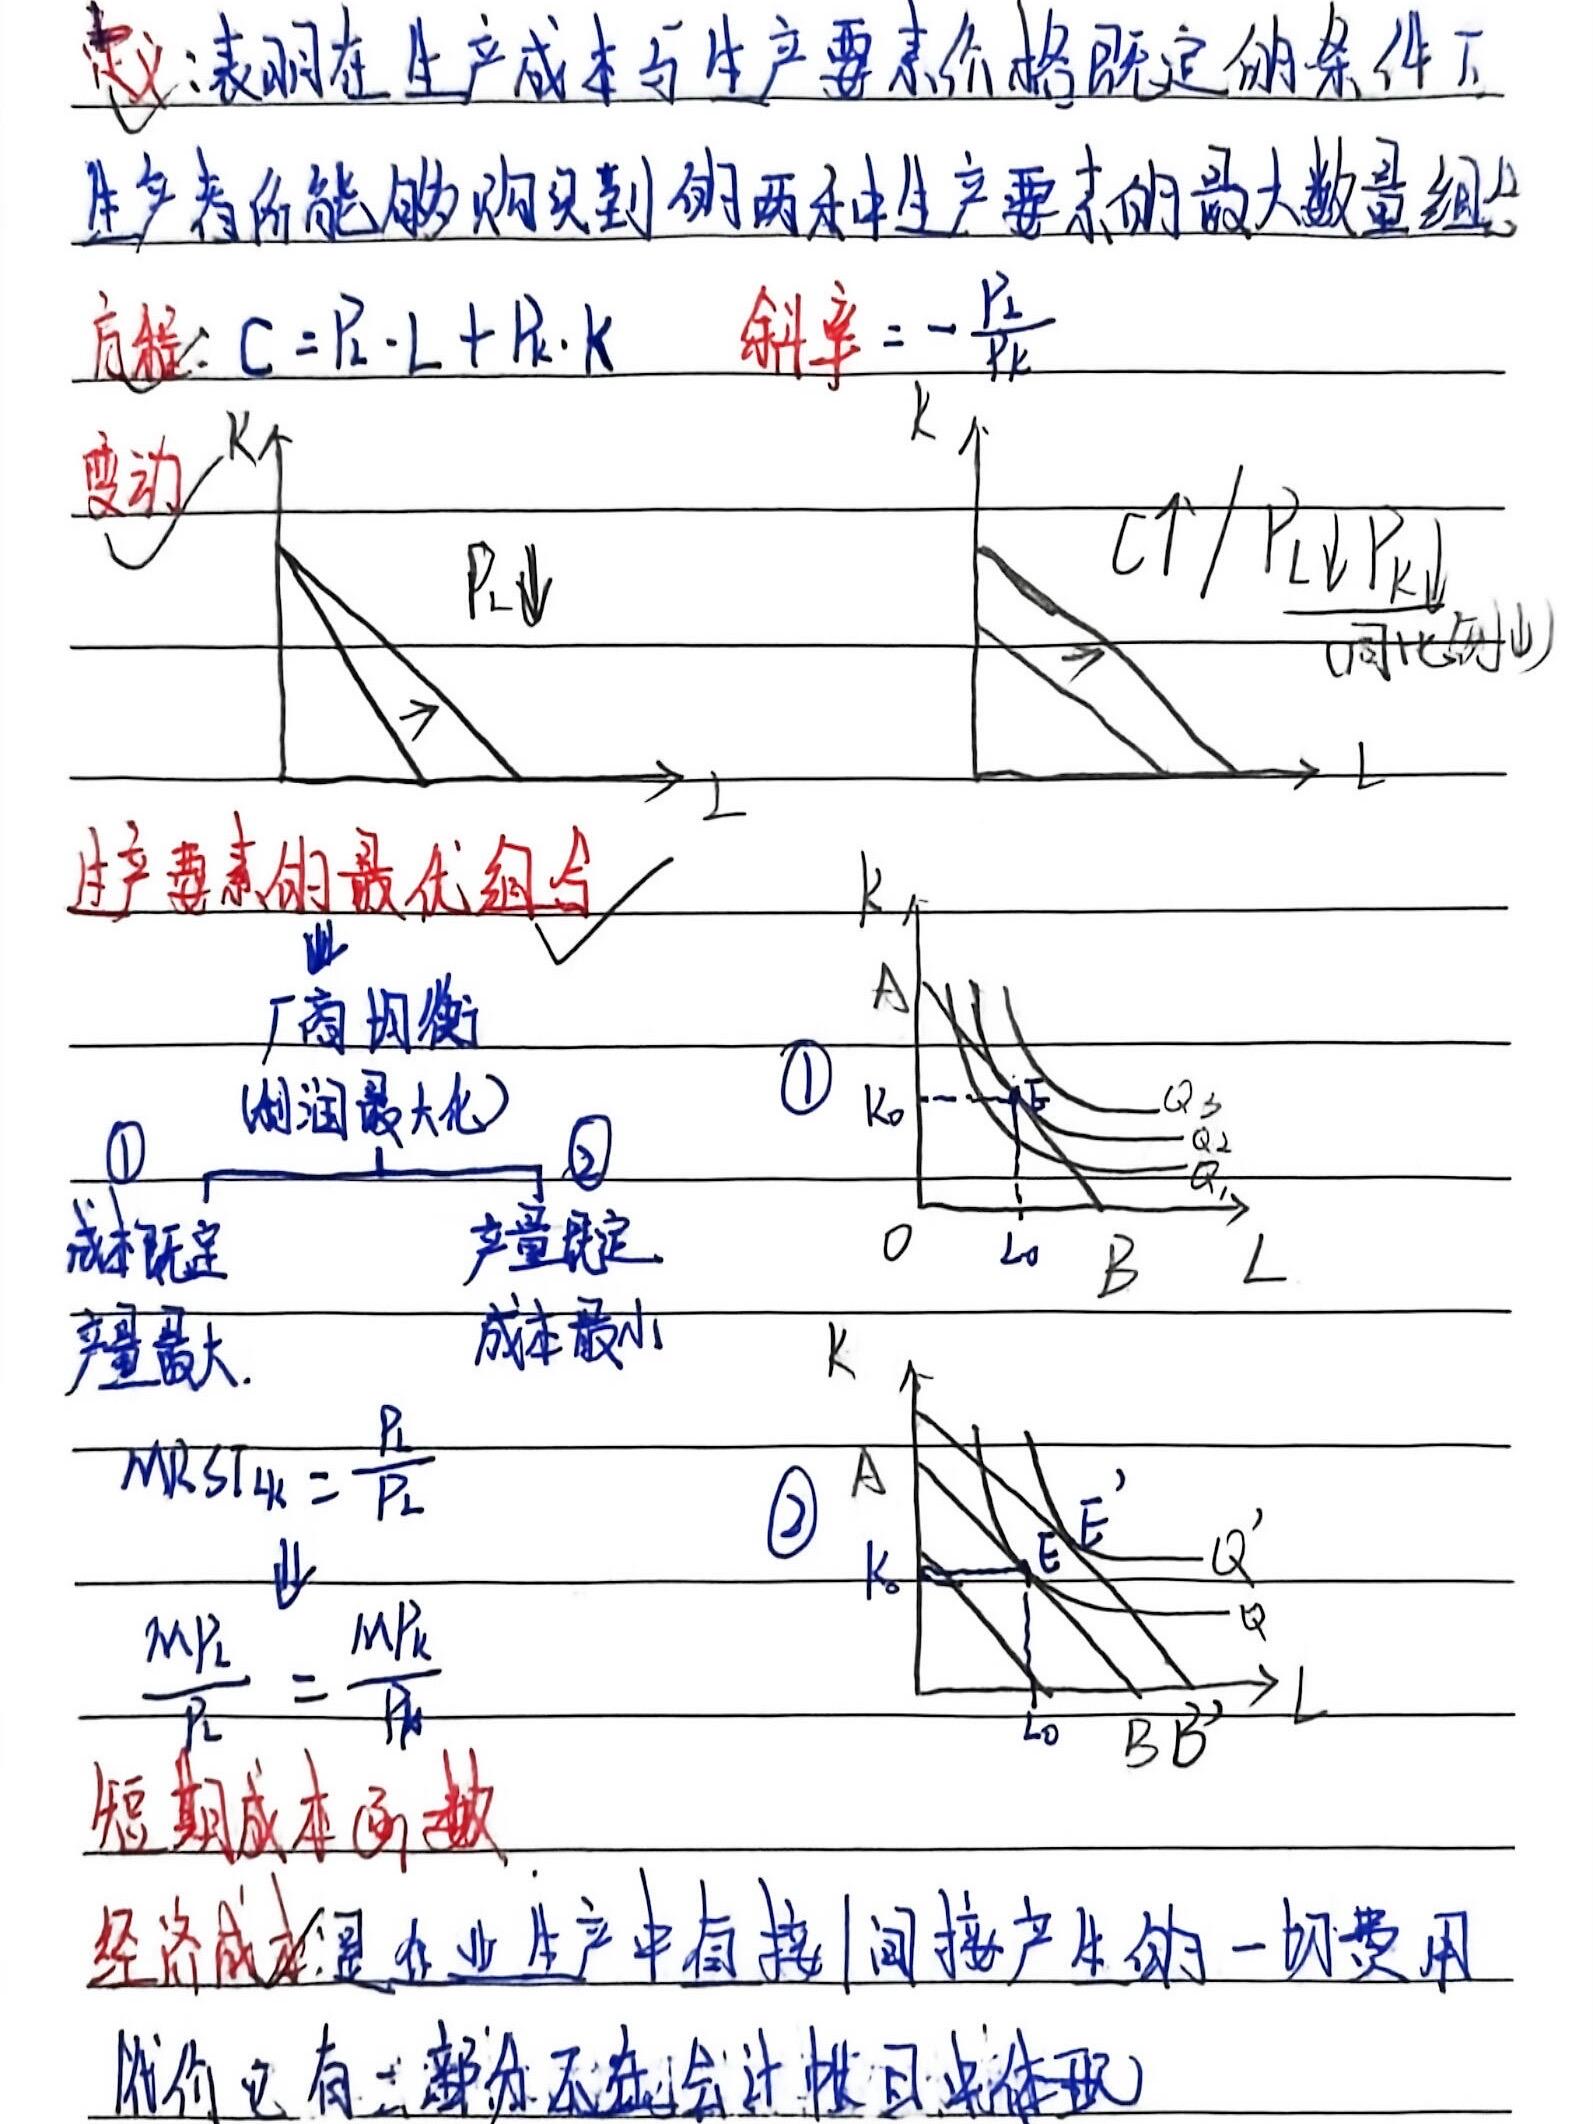 定义:表明在生产成本与生产要素价格既定的条件下
生产者所能够购买到的两种生产要素的最大数量组合
方程: C=PL·L+PK·K 斜率=-PL/PK
变动
K
PL↓
L
K
C↑/PL↓PK↓
(同比例↓)
L
生产要素的最优组合
↓
厂商均衡
(利润最大化)
① ②
成本既定 产量既定.
产量最大. 成本最小
MRSTLK=PL/PL
⇓
MPL/PL=MPK/PK
①
K
A
K0
E
Q3
Q2
Q1
O L0 B L
②
K
A
K0
E E'
Q'
Q
L0 B B' L
短期成本函数
经济成本:是企业生产中直接|间接产生的一切费用
代价它有一部分不在会计帐目中体现